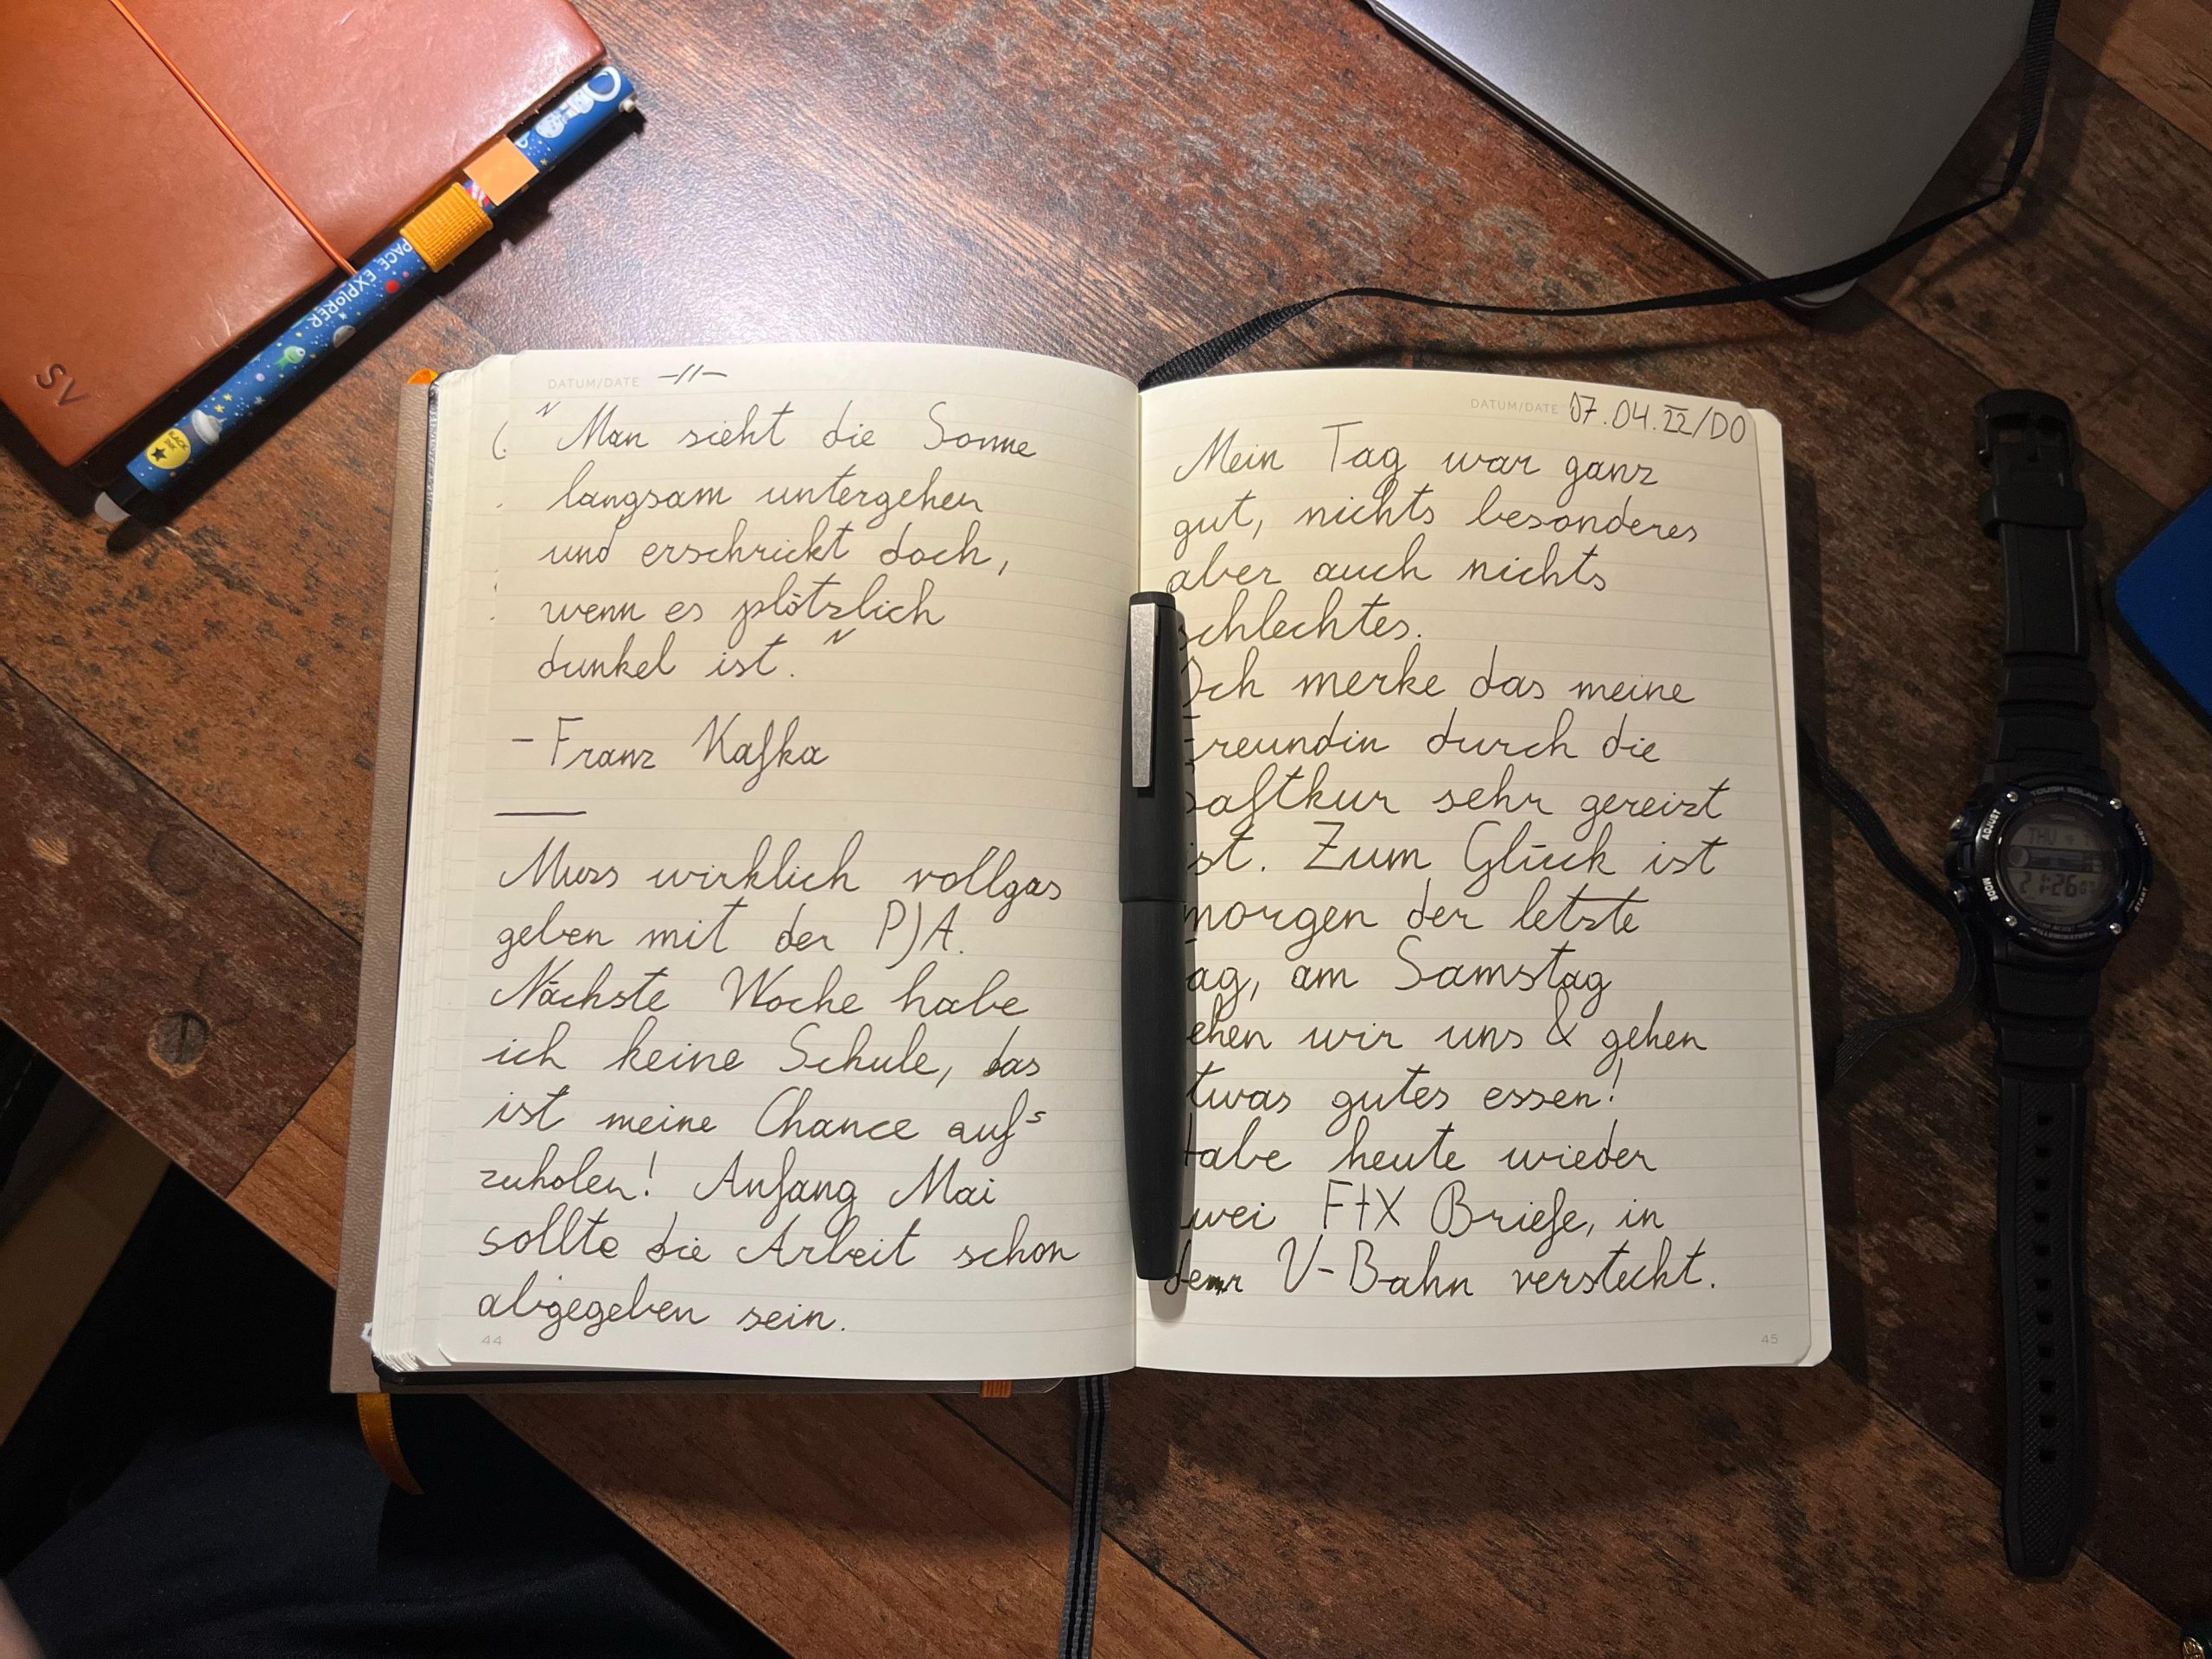 DATUM/DATE -//-
"Man sieht die Sonne
langsam untergehen
und erschrickt doch,
wenn es plötzlich
dunkel ist."
- Franz Kafka
Muss wirklich vollgas
geben mit der PJA.
Nächste Woche habe
ich keine Schule, das
ist meine Chance aufs
zuholen! Anfang Mai
sollte die Arbeit schon
abgegeben sein.
44
DATUM/DATE 07.04.22/DO
Mein Tag war ganz
gut, nichts besonderes
aber auch nichts
schlechtes.
Ich merke das meine
Freundin durch die
saftkur sehr gereizt
ist. Zum Glück ist
morgen der letzte
ag, am Samstag
ehen wir uns & gehen
twas gutes essen!
Habe heute wieder
wei FtX Briefe, in
der U-Bahn versteckt.
45
SV
SPACE EXPLORER
BLACK INK
TOUGH SOLAR
ADJUST
LIGHT
THU
21:26
MODE
START
ILLUMINATOR